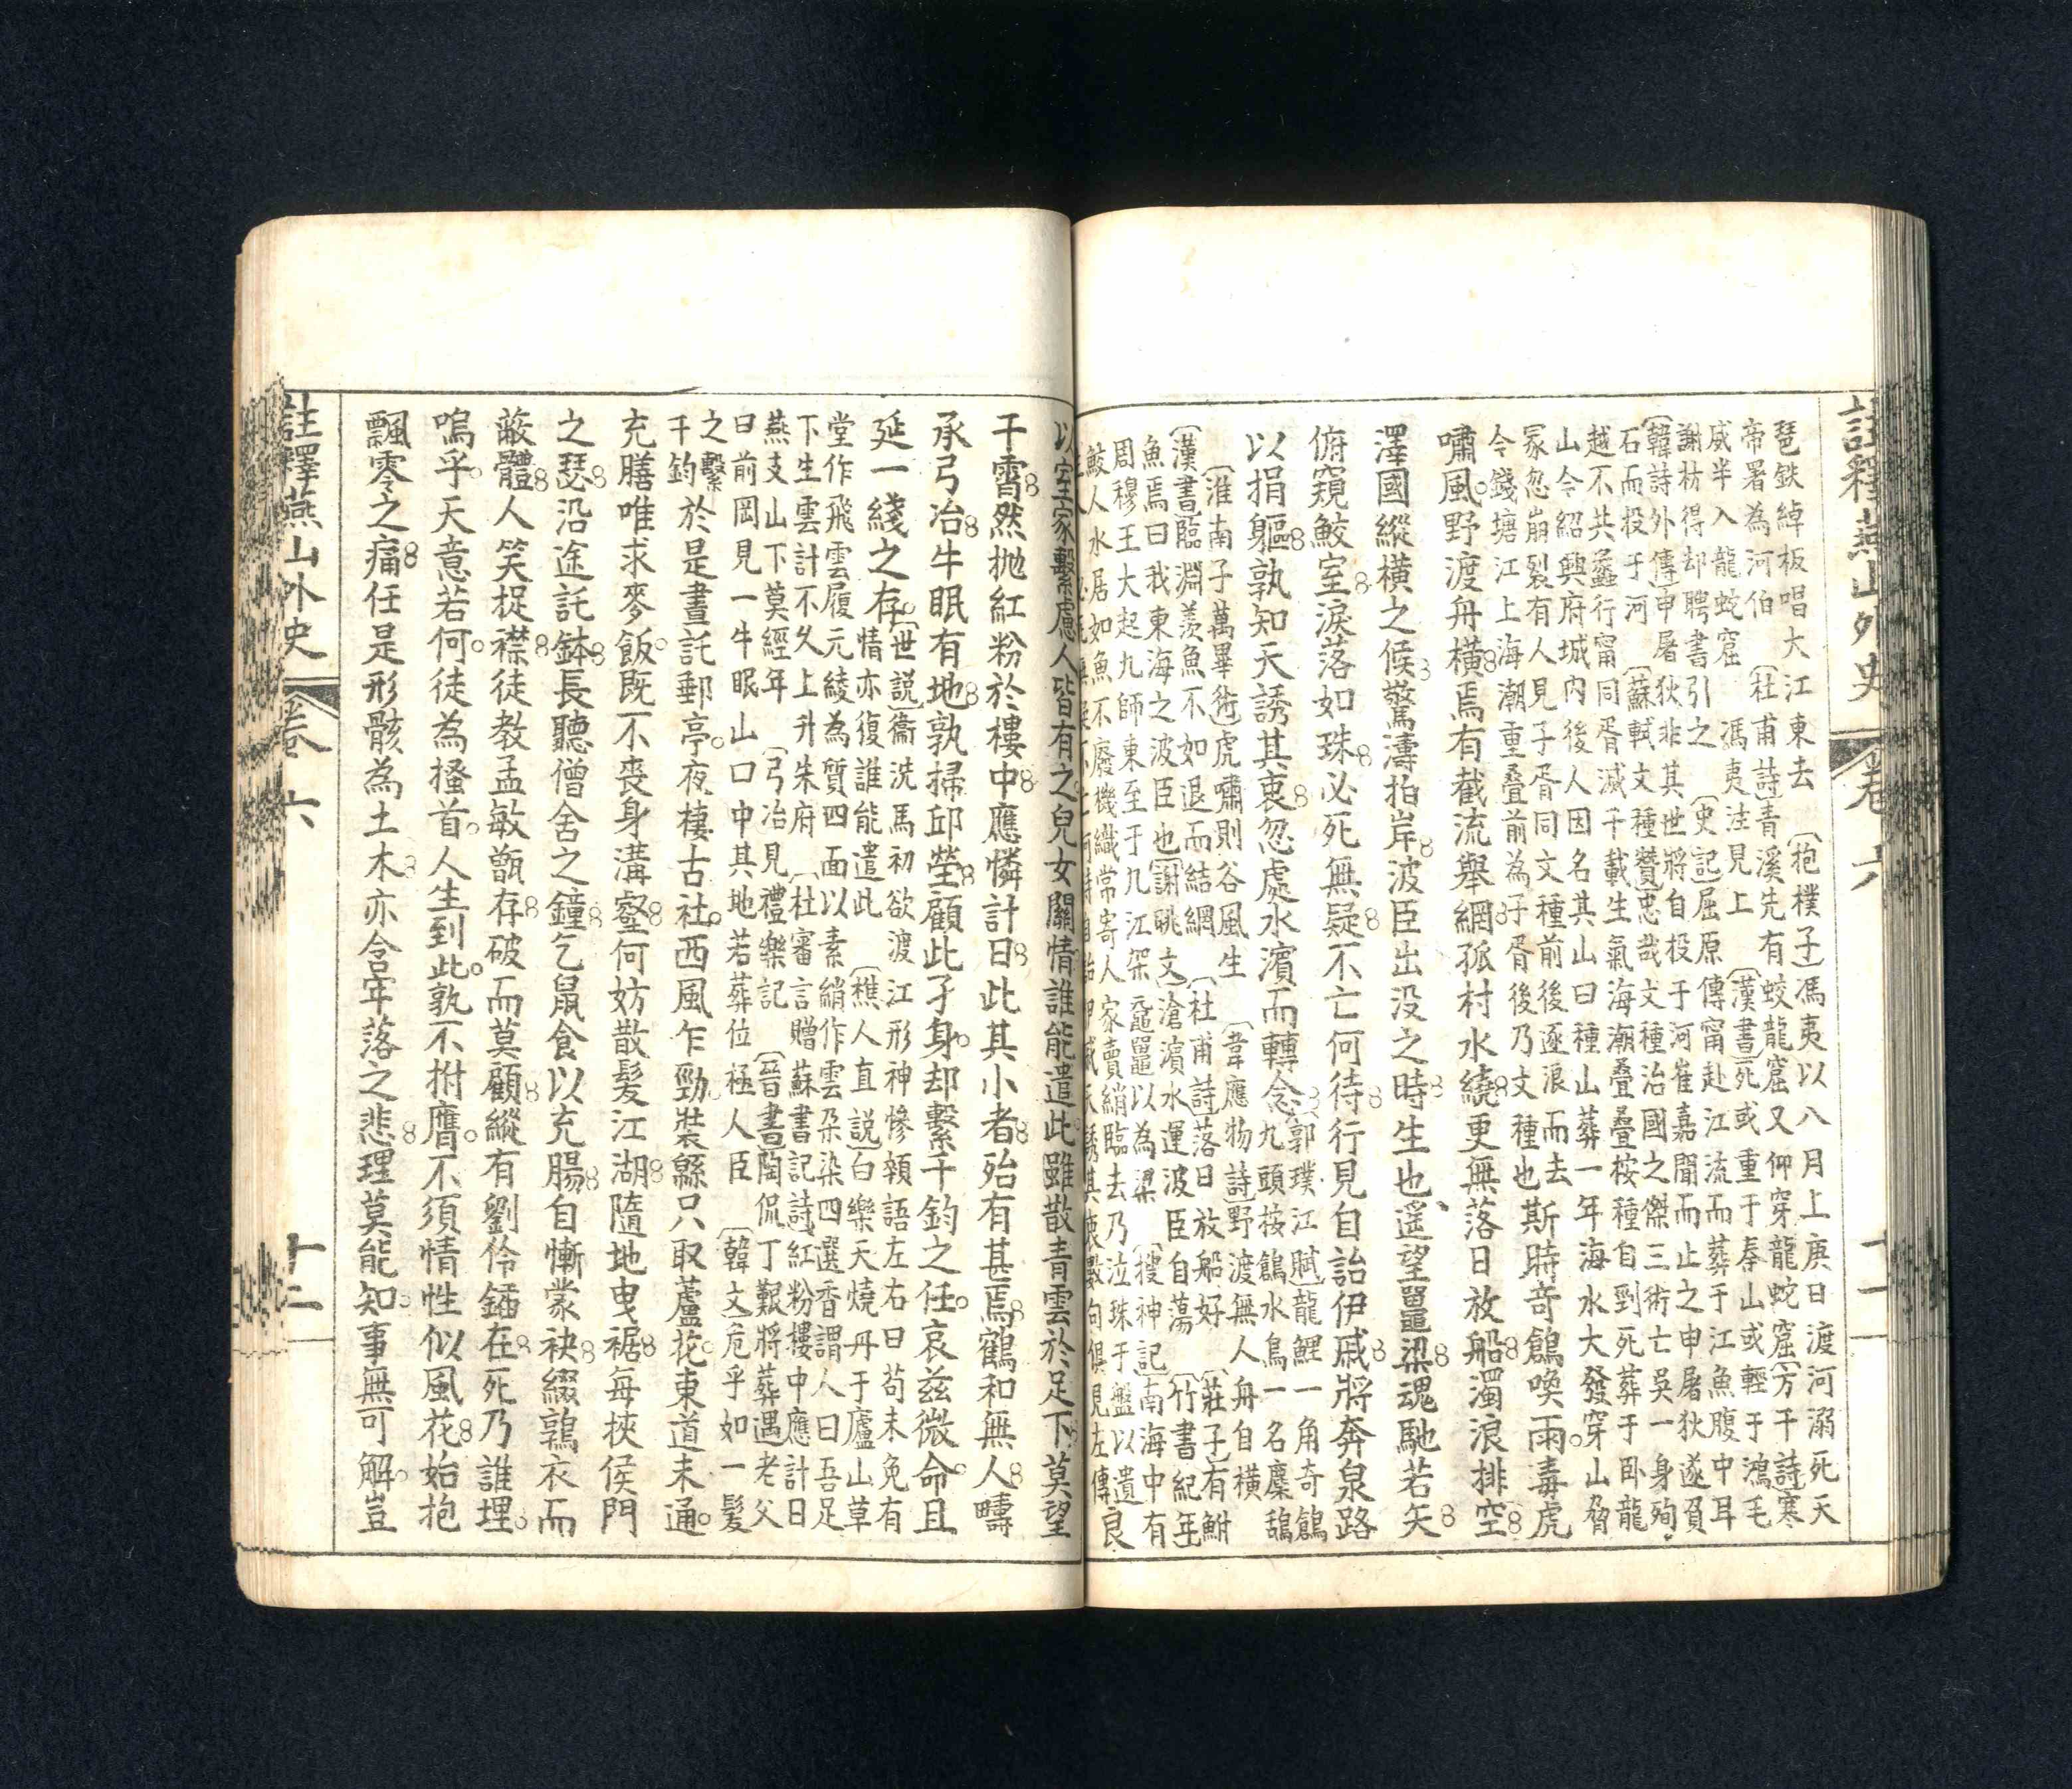 註釋燕山外史 卷六 十一
琶鉄綽板唱大江東去 〔抱樸子〕馮夷以八月上庚日渡河溺死天
帝署為河伯 〔杜甫詩〕青溪先有蛟龍窟又仰穿龍蛇窟〔方干詩〕寒
威半入龍蛇窟 馮夷注見上 〔漢書〕死或重于泰山或輕于鴻毛
謝枋得却聘書引之 〔史記〕屈原傳甯赴江流而葬于江魚腹中耳
〔韓詩外傳〕申屠狄非其世將自投于河崔嘉聞而止之申屠狄遂負
石而投于河 〔蘇軾文種贊〕忠哉文種治國之傑三術亡吳一身殉
越不共蠡行甯同胥滅千載生氣海潮疊疊按種自剄死葬于臥龍
山今紹興府城内後人因名其山曰種山葬一年海水大發穿山脅
冢忽崩裂有人見子胥同文種前後逐浪而去
今錢塘江上海潮重叠前為子胥後乃文種也
斯時竒鶬喚雨毒虎
嘯風野渡舟橫焉有截流舉網孤村水繞更無落日放船濁浪排空
澤國縱橫之候驚濤拍岸波臣出没之時生也遥望鼉梁魂馳若矢
俯窺鮫室淚落如珠必死無疑不亡何待行見自詒伊戚將奔泉路
以捐軀孰知天誘其衷忽處水濱而轉念
〔郭璞江賦〕龍鯉一角奇鶬
九頭按鶬水鳥一名麋鴰
〔淮南子萬畢術〕虎嘯則谷風生 〔韋應物詩〕野渡無人舟自橫
〔漢書〕臨淵羨魚不如退而結網 〔杜甫詩〕落日放船好 〔莊子〕有鮒
魚焉曰我東海之波臣也〔謝眺文〕滄濱水運波臣自蕩 〔竹書紀年〕
周穆王大起九師東至于九江架黿鼉以為梁 〔搜神記〕南海中有
鮫人水居如魚不廢機織常寄人家賣綃臨去乃泣珠于盤以遺
誘其衷數句俱見左傳 良
以室家繫慮人皆有之兒女關情誰能遣此雖散青雲於足下莫望
干霄然拋紅粉於樓中應憐計日此其小者殆有甚焉鶴和無人疇
承弓冶牛眠有地孰掃邱塋顧此孑身却繫千鈞之任哀兹微命且
延一綫之存
〔世説〕衞洗馬初欲渡江形神慘顇語左右曰苟未免有
情亦復誰能遣此 〔樵人直説〕白樂天燒丹于廬山草
堂作飛雲履元綾為質四面以素綃作雲朶染四選香謂人曰吾足
下生雲計不久上升朱府 〔杜審言贈蘇書記詩〕紅粉樓中應計日
燕支山下莫經年 〔弓冶見禮樂記 〔晉書〕陶侃丁艱將葬遇老父
曰前岡見一牛眠山口中其地若葬位極人臣 〔韓文〕危乎如一髮
之繫
千鈞
於是晝託郵亭夜棲古社西風乍勁裝緜只取蘆花東道未通
充膳唯求麥飯既不喪身溝壑何妨散髮江湖隨地曳裾每挾侯門
之瑟沿途託鉢長聽僧舍之鐘乞鼠食以充腸自慚蒙袂綴鶉衣而
蔽體人笑捉襟徒教孟敏甑存破而莫顧縱有劉伶鍤在死乃誰埋
嗚乎天意若何徒為搔首人生到此孰不拊膺不須情性似風花始抱
飄零之痛任是形骸為土木亦含牢落之悲理莫能知事無可解豈
註釋燕山外史 卷六 十二